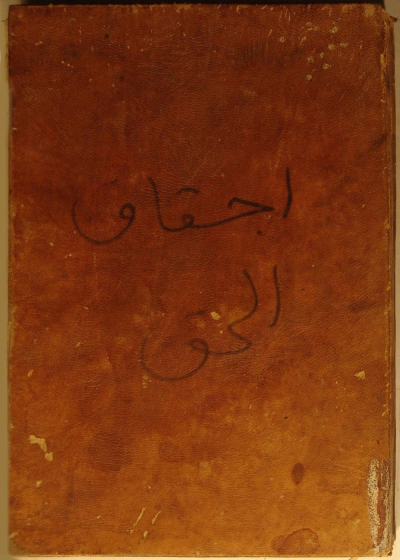 احقاق
الحق